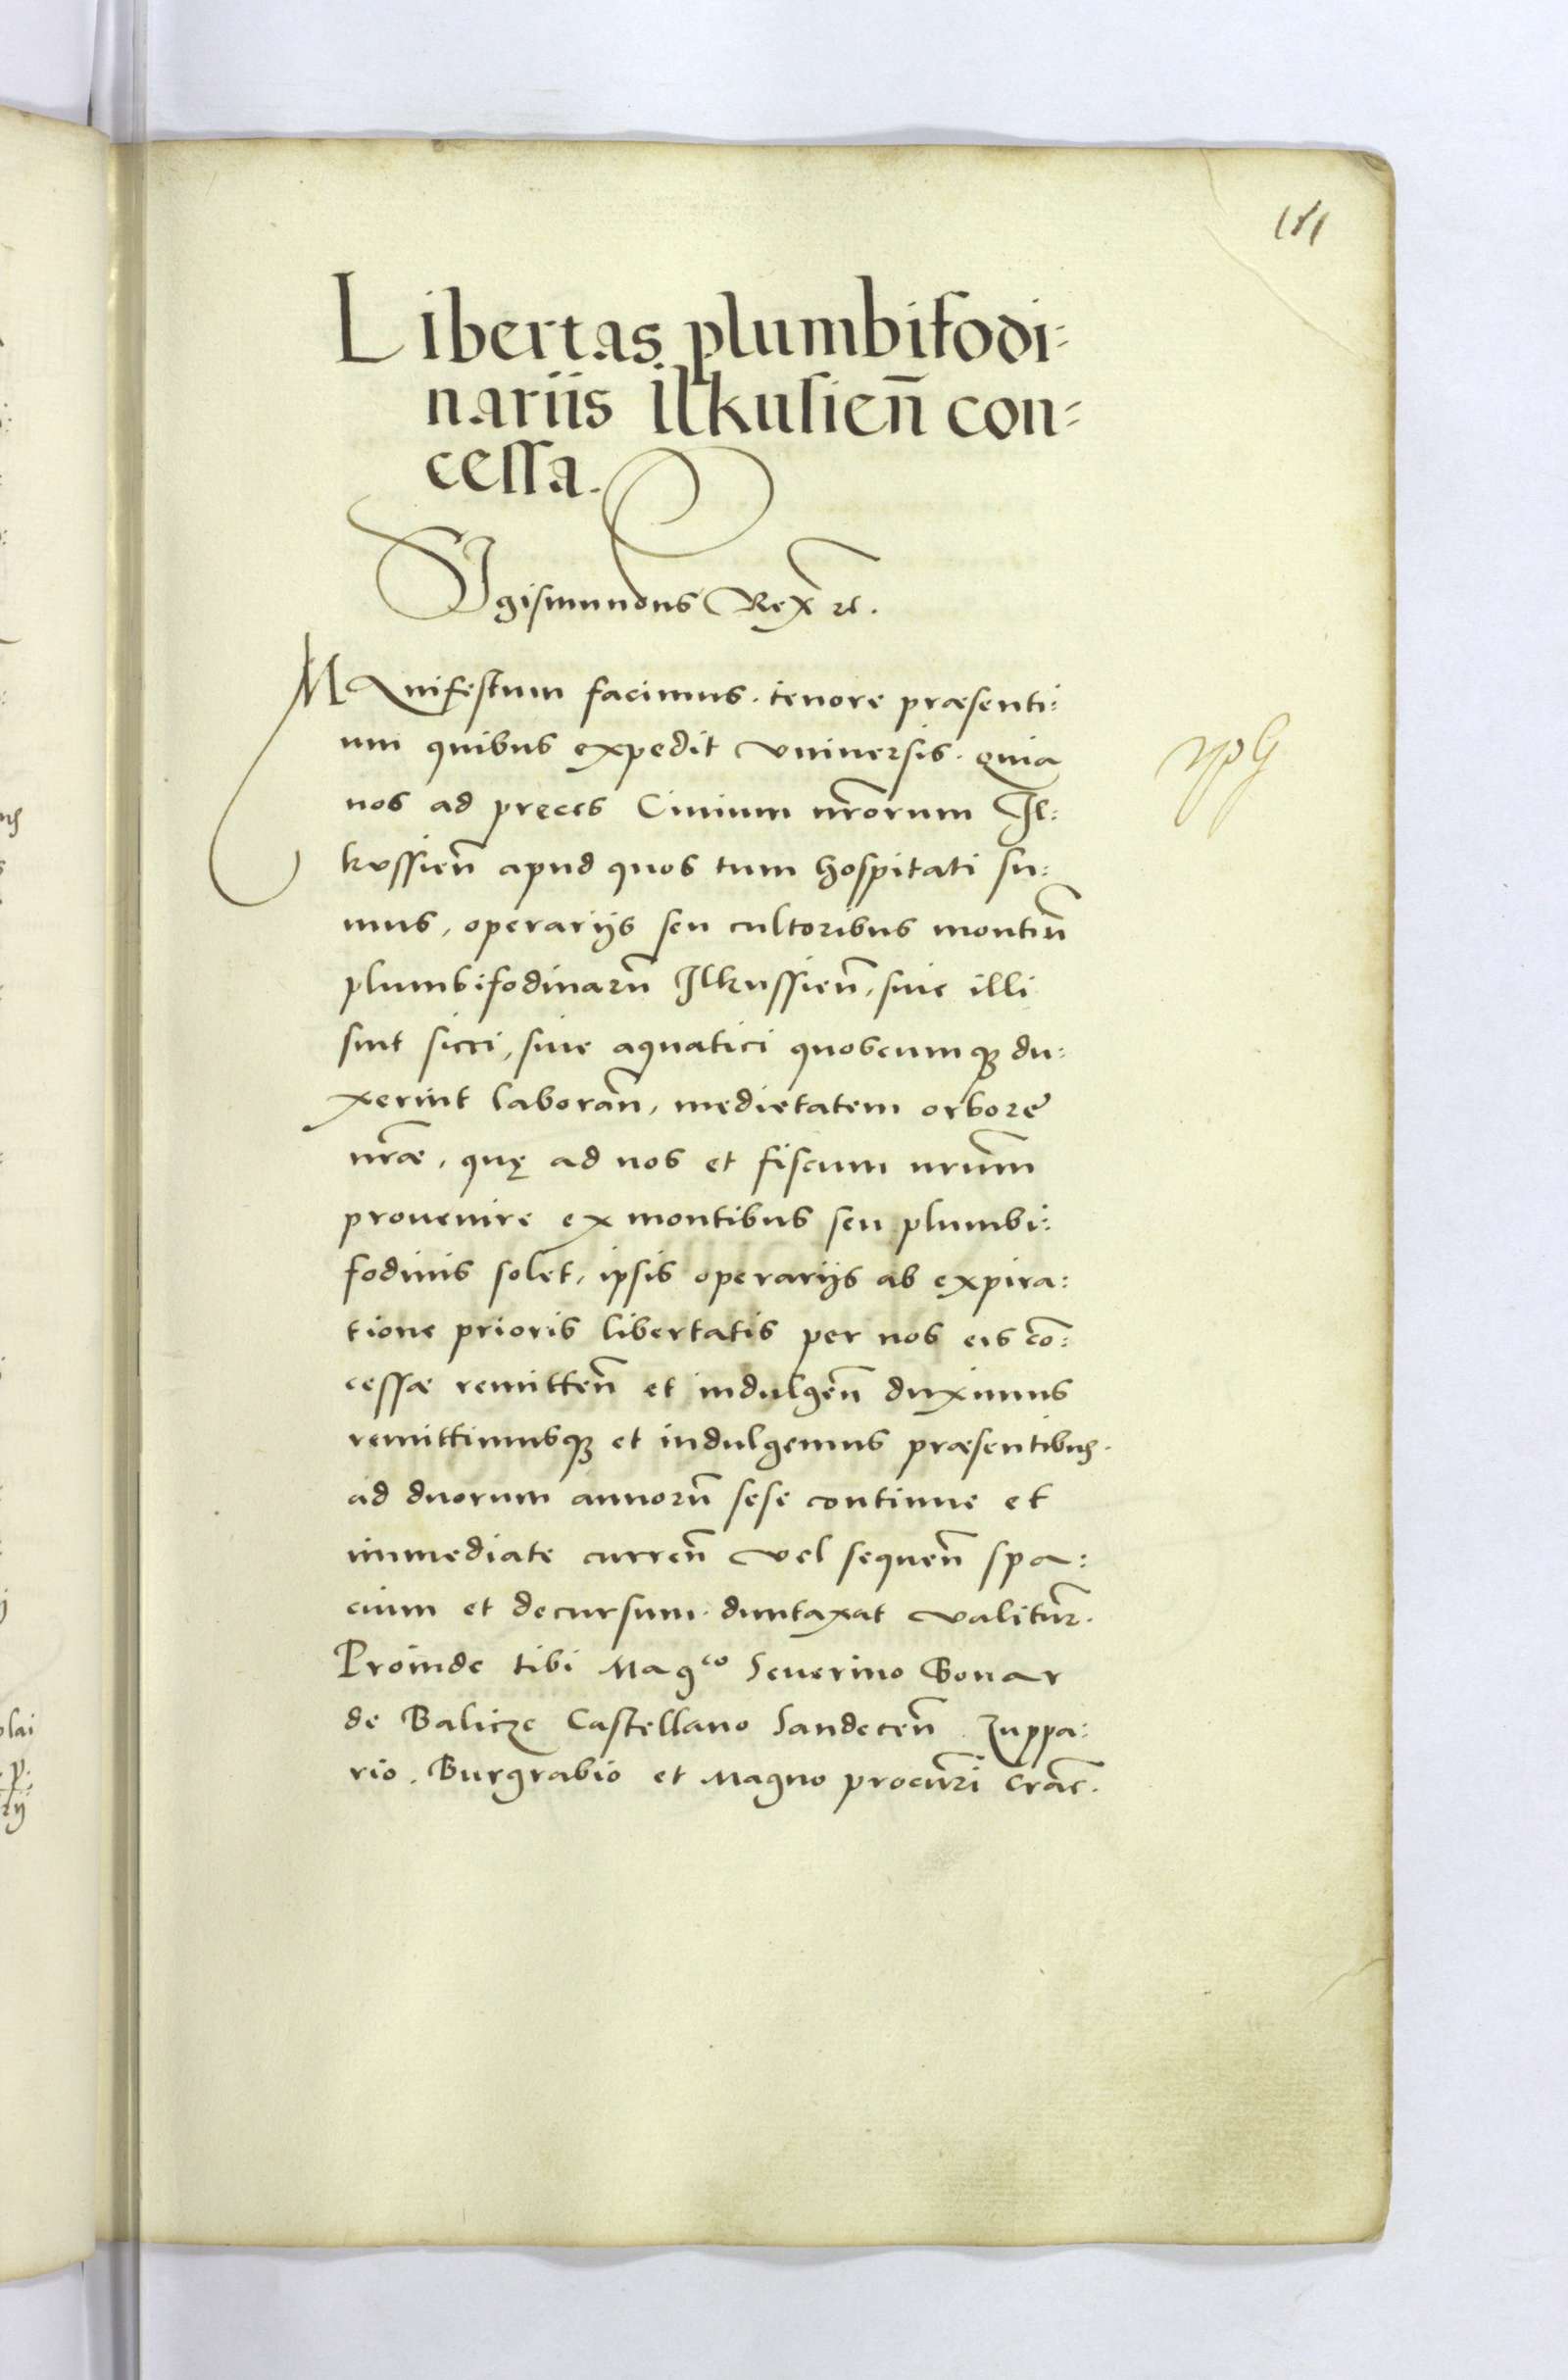 181
Libertas plumbifodi:
nariis Ilkusień con:
cessa.
Sigismundus Rex ꝛc.
MAnifestum facimus. tenore præsenti:
um quibus expedit vniuersis. quia
nos ad pręces Ciuium nr̃orum Il:
kussieñ apud quos tum hospitati su:
mus, operarijs seu cultoribus montiũ
plumbifodinarũ Ilkussieñ, siue illi
sint sicci, siue aquatici quoscumqꝫ du:
xerint laborañ, medietatem orbore
nr̃æ, quę ad nos et fiscum nr̃um
prouenire ex montibus seu plumbi:
fodinis solet, ipsis operarijs ab expira:
tione prioris libertatis per nos eis cõ:
cessæ remitteñ et indulgeñ duximus
remittimusqꝫ et indulgemus præsentibus.
ad duorum annorũ sese continue et
immediate curreñ vel sequeñ spa:
cium et decursum. duntaxat valitur̃.
Proinde tibi Mag.co Seuerino Bonar
de Balicze Castellano Sandeceñ. Zuppa:
rio. Burgrabio et Magno procur̃ri Crac̃.
plai
rij